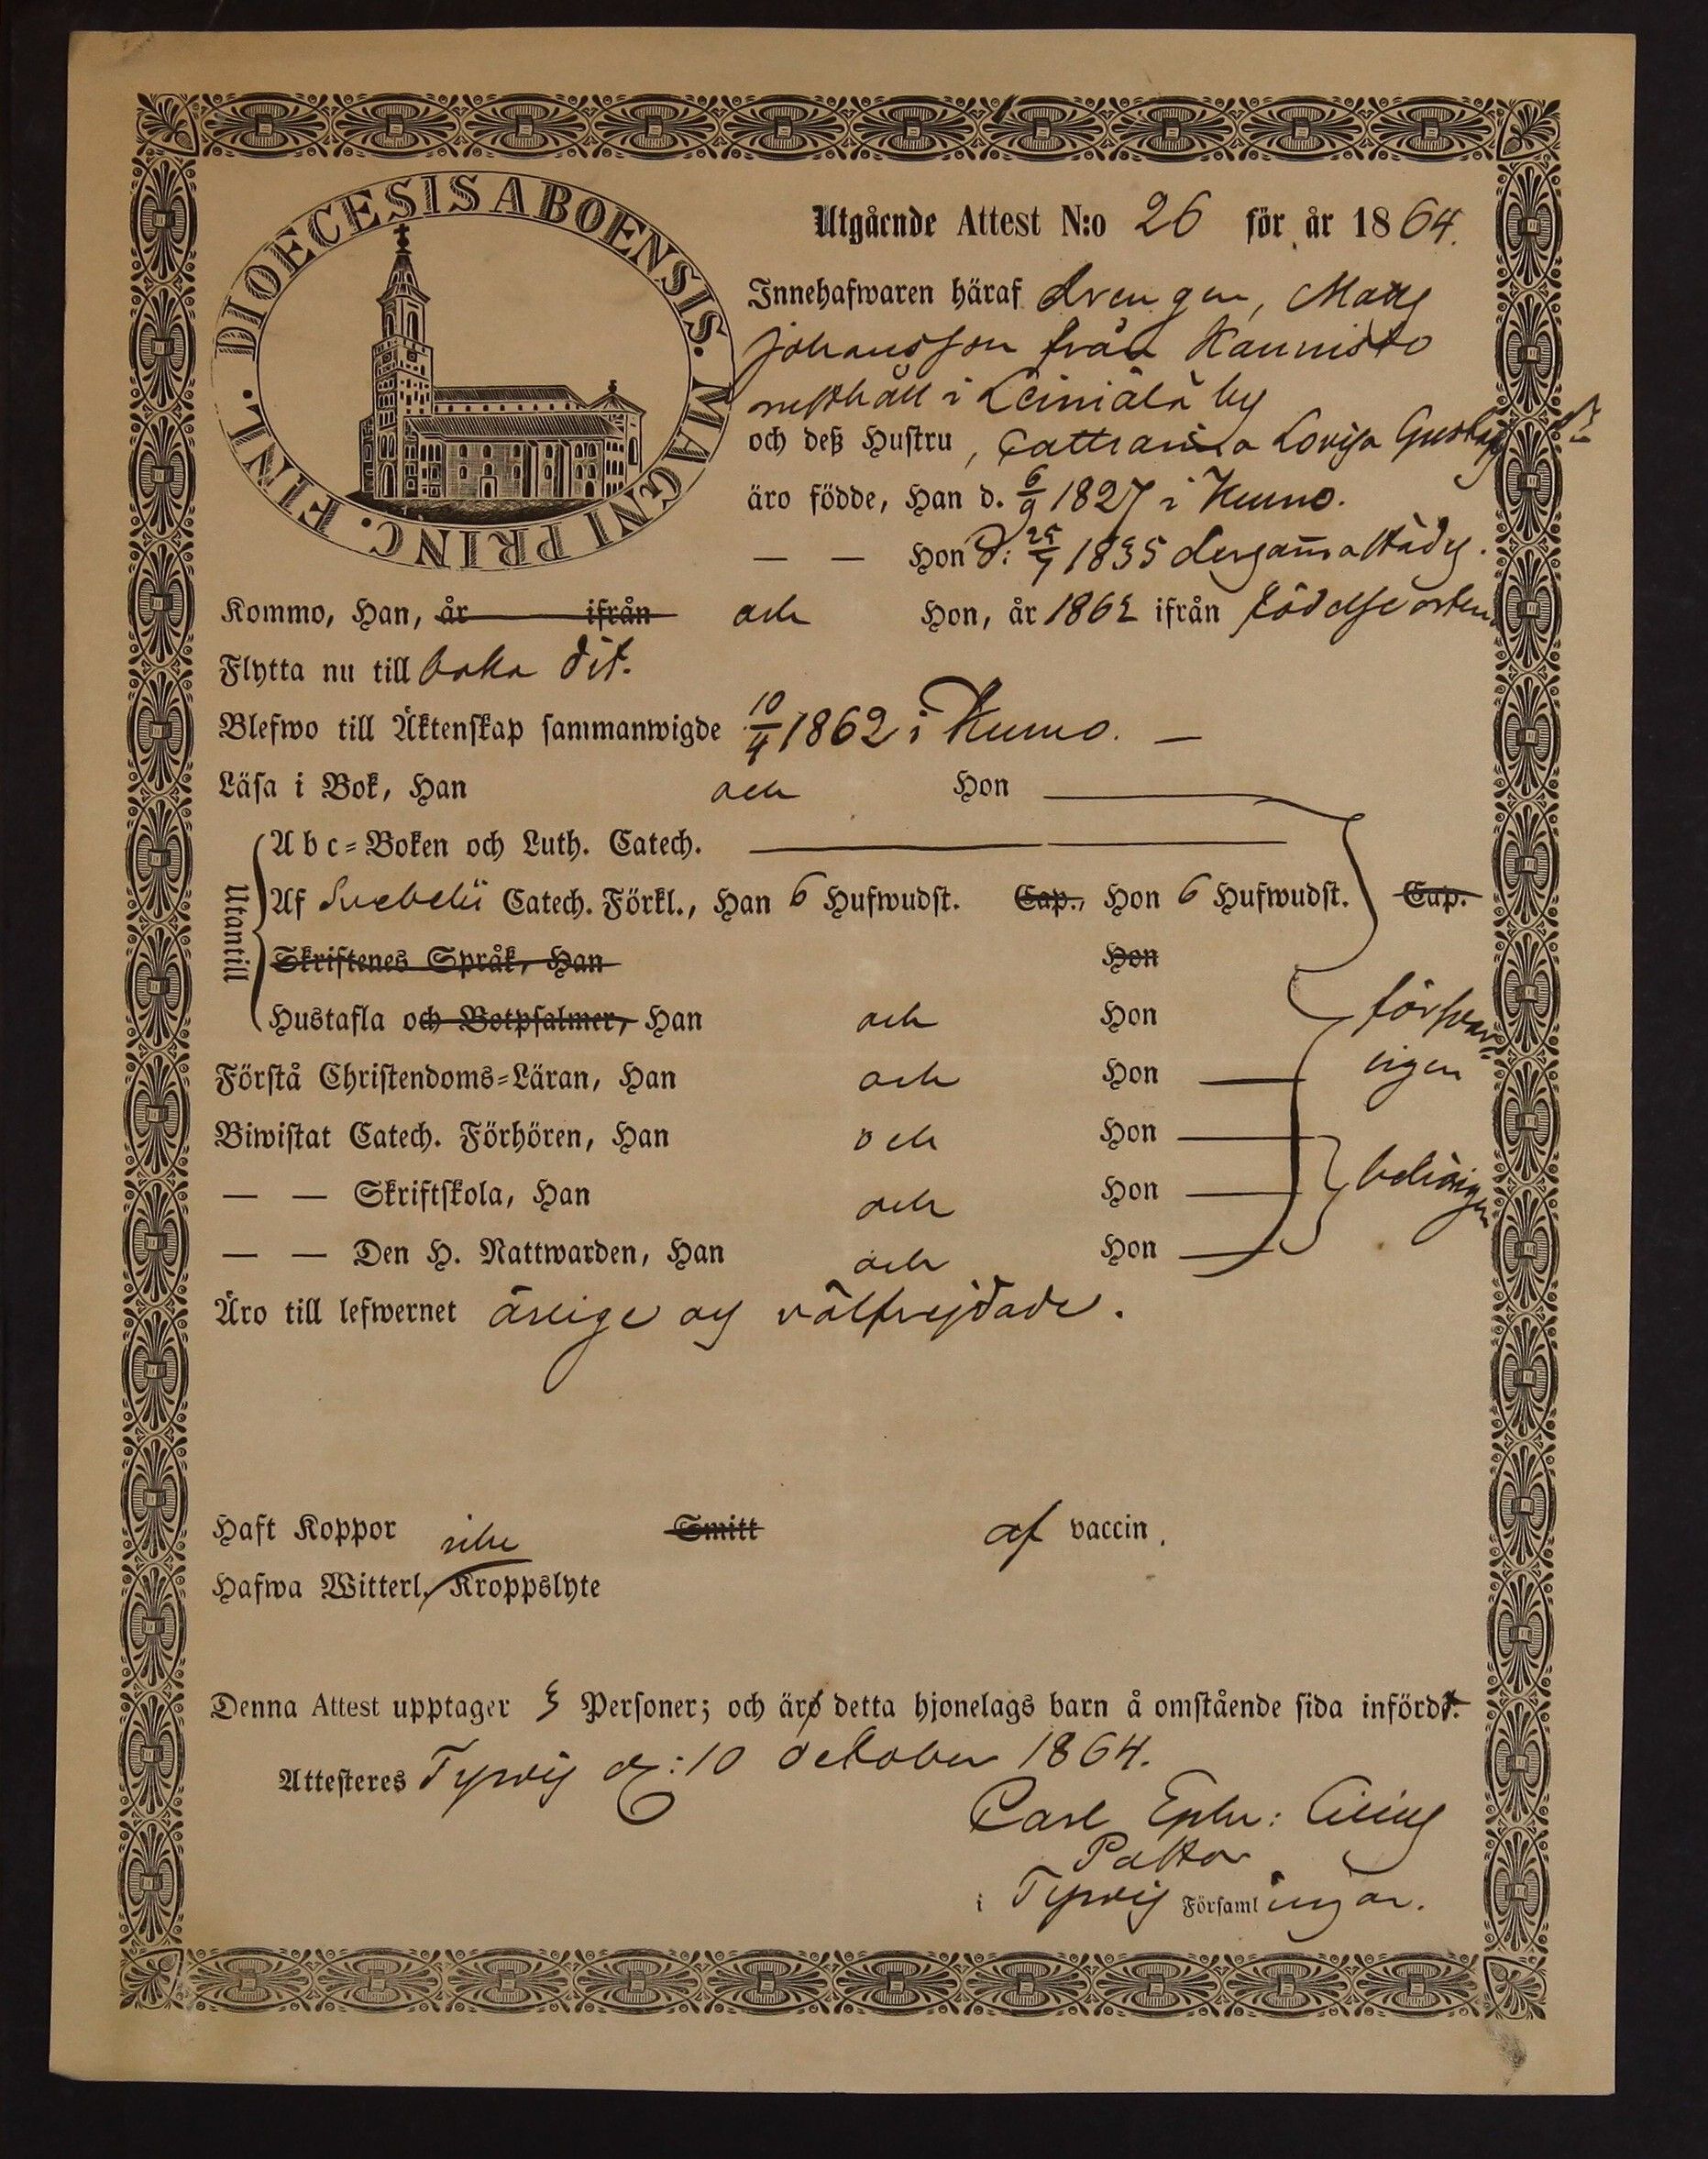 DIOECESIS ABOENSIS. MAGNI PRINC. FINL.
Utgående Attest N:o 26 för år 1864.
Innehafwaren häraf drengen, Matts
Johansson från Kannisto
rusthåll i Leiniälä by
och deß Hustru, Cattarina Lovisa Gustafsdr
äro födde, Han d. 6/9 1827 i Kumo.
— — Hon d: 25/7 1835 dersammastädes.
Kommo, Han, år ifrån och Hon, år 1862 ifrån födelseorten
Flytta nu till baka dit.
Blefwo till Äktenskap sammanwigde 10/4 1862 i Kumo. —
Läsa i Bok, Han och Hon
Utantill
Abc-Boken och Luth. Catech.
Af Svebelii Catech. Förkl., Han 6 Hufwudst. Cap., Hon 6 Hufwudst. Cap.
Skriftenes Språk, Han Hon
Hustafla och Botpsalmer, Han och Hon
försvar-
ligen
Förstå Christendoms-Läran, Han och Hon
Biwistat Catech. Förhören, Han och Hon
— — Skriftskola, Han och Hon
behörigen
— — Den H. Nattwarden, Han och Hon
Äro till lefwernet ärlige och välfrejdade.
Haft Koppor Smitt af vaccin.
Hafwa Witterl. icke Kroppslyte
Denna Attest upptager 3 Personer; och äro detta hjonelags barn å omstående sida infördt.
Attesteres Tyrvis d: 10 October 1864.
Carl Ephr:
Pastor
i Tyrvis Församlingar.